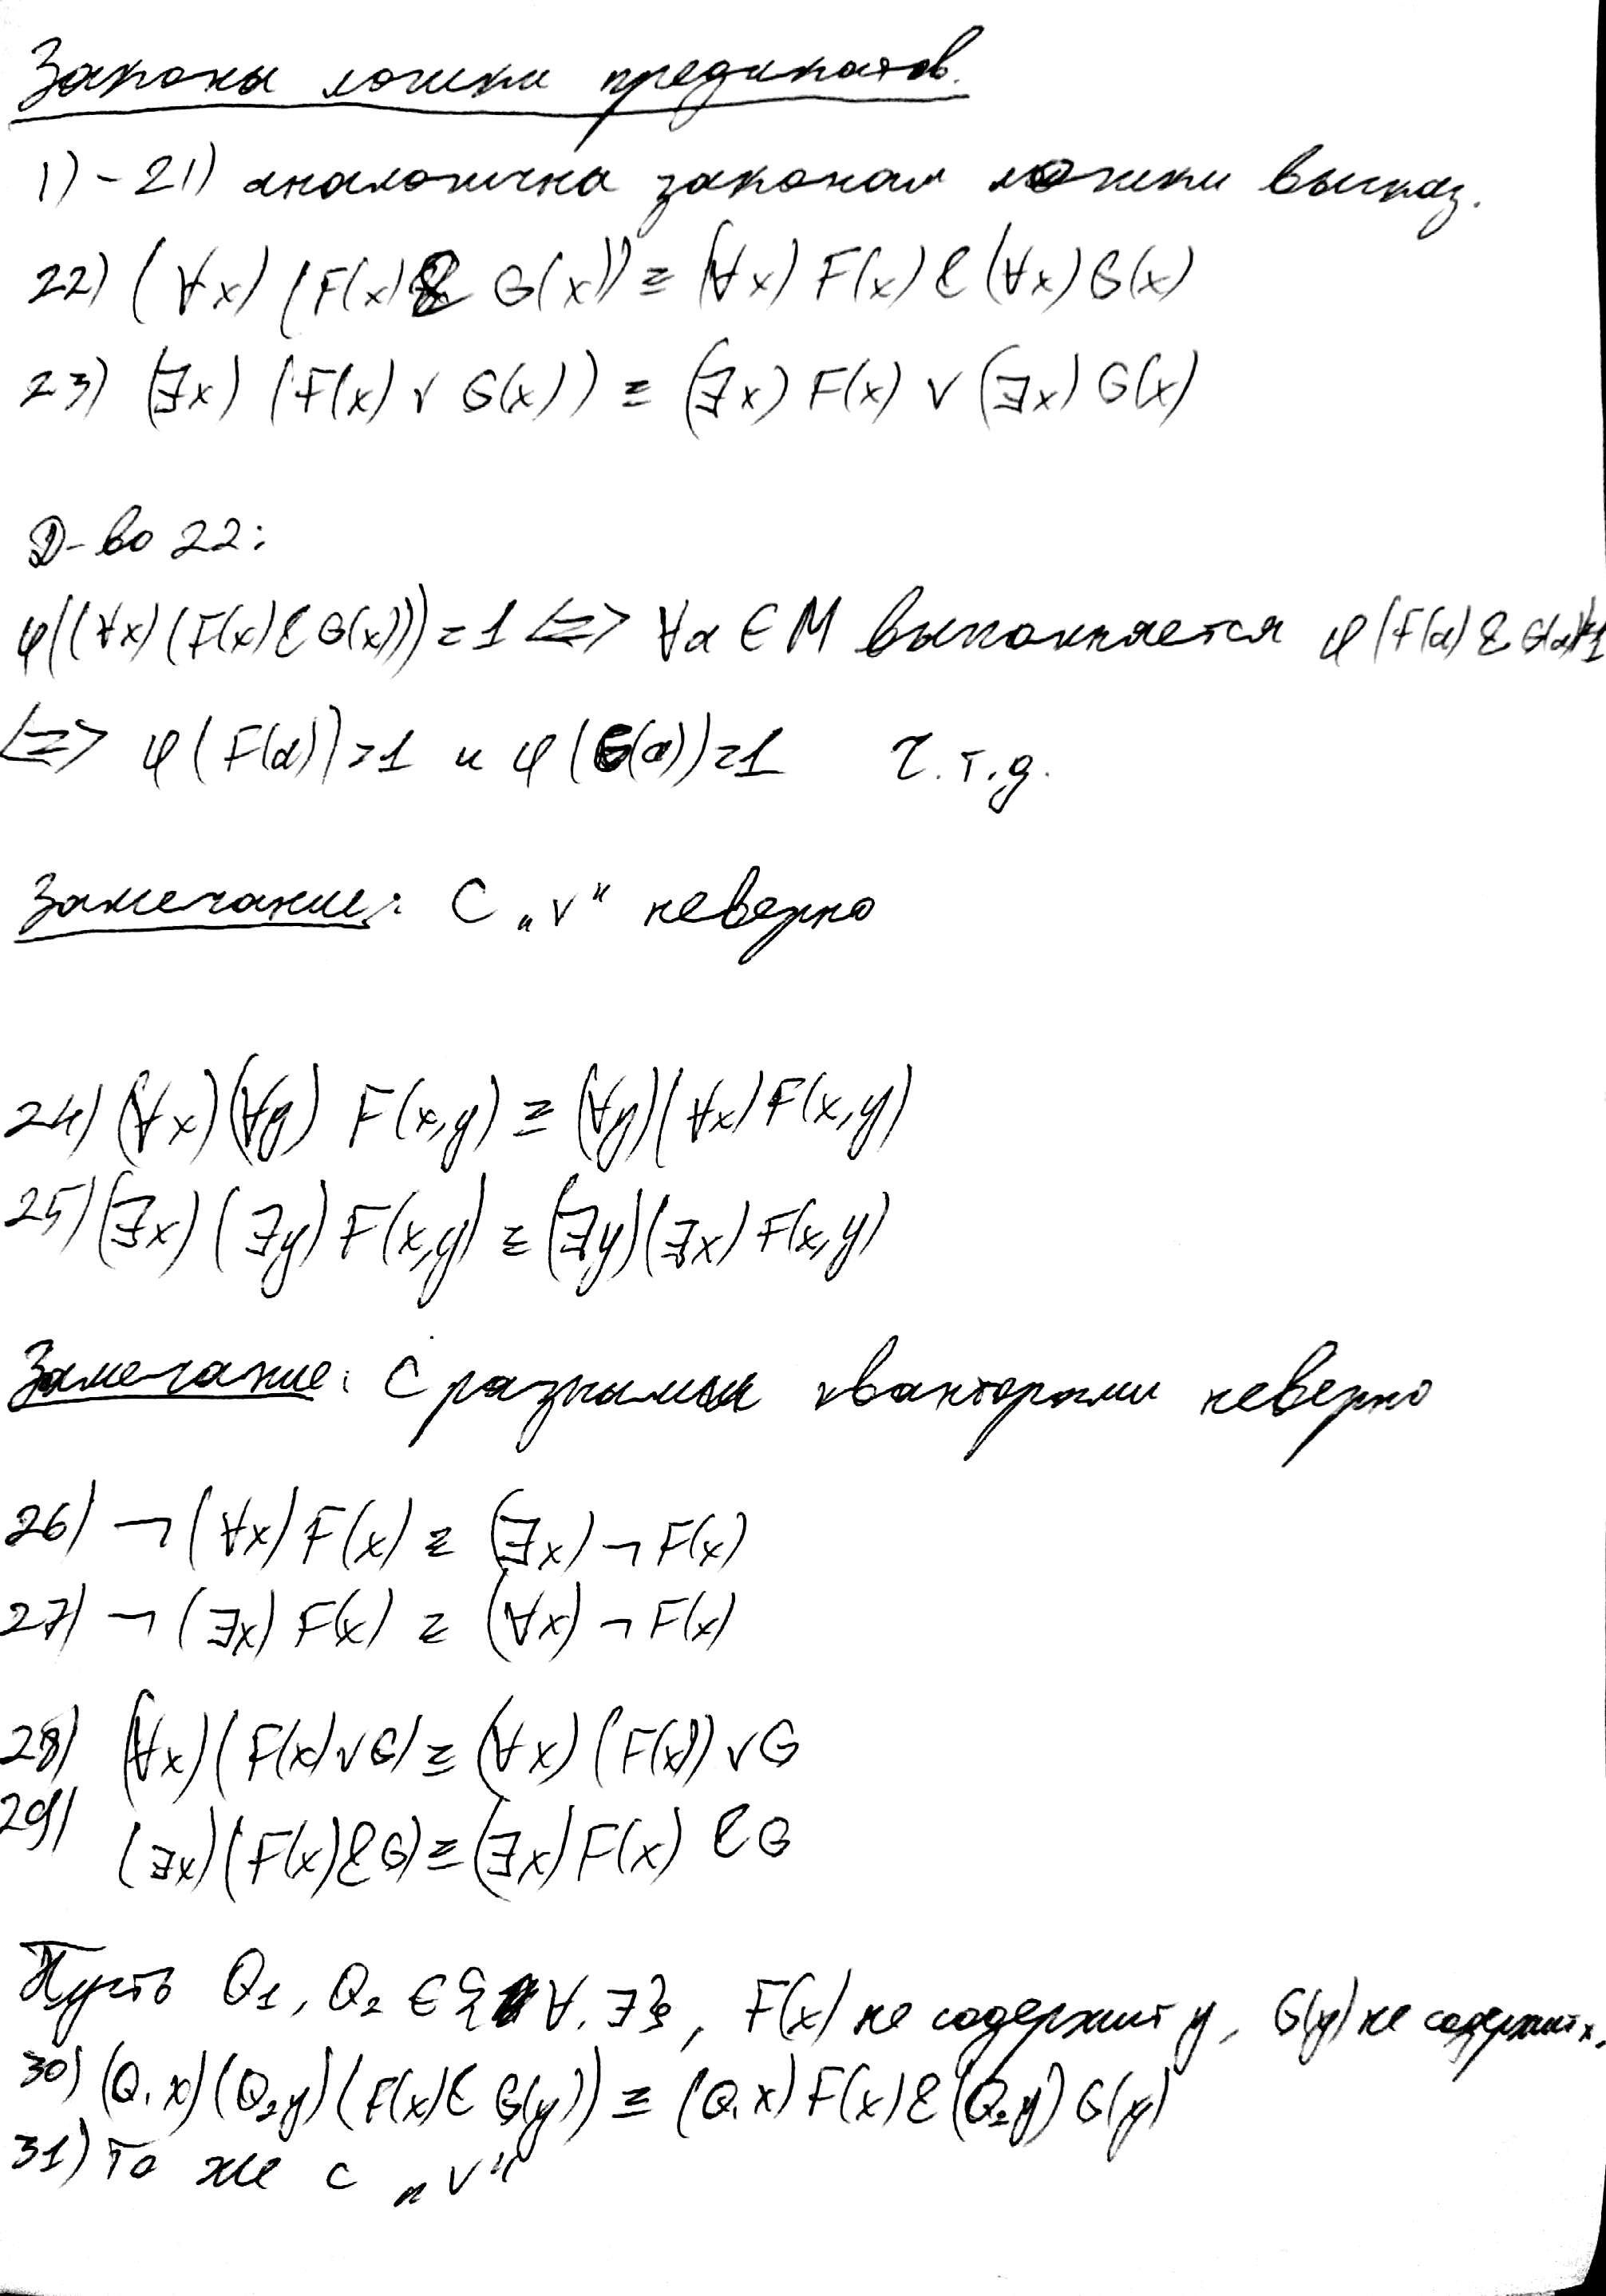 Законы логики предикатов.
1) - 21) аналогична законам логики высказ.
22) (∀x) (F(x) & G(x)) ≡ (∀x) F(x) & (∀x) G(x)
23) (∃x) (F(x) ∨ G(x)) ≡ (∃x) F(x) ∨ (∃x) G(x)
Д-во 22:
φ((∀x) (F(x) & G(x))) = 1 <=> ∀a ∈ M выполняется φ(F(a) & G(a))=1
<=> φ(F(a)) = 1 и φ(G(a)) = 1 ч.т.д.
Замечание: С „∨“ неверно
24) (∀x)(∀y) F(x,y) ≡ (∀y)(∀x) F(x,y)
25) (∃x) (∃y) F(x,y) ≡ (∃y)(∃x) F(x,y)
Замечание: С разными кванторами неверно
26) ¬ (∀x) F(x) ≡ (∃x) ¬ F(x)
27) ¬ (∃x) F(x) ≡ (∀x) ¬ F(x)
28) (∀x) (F(x) ∨ G) ≡ (∀x) (F(x)) ∨ G
29) (∃x) (F(x) & G) ≡ (∃x) F(x) & G
Пусть Q1, Q2 ∈ {∀, ∃}, F(x) не содержит y, G(y) не содержит x.
30) (Q1 x) (Q2 y) (F(x) & G(y)) ≡ (Q1 x) F(x) & (Q2 y) G(y)
31) То же с „∨“